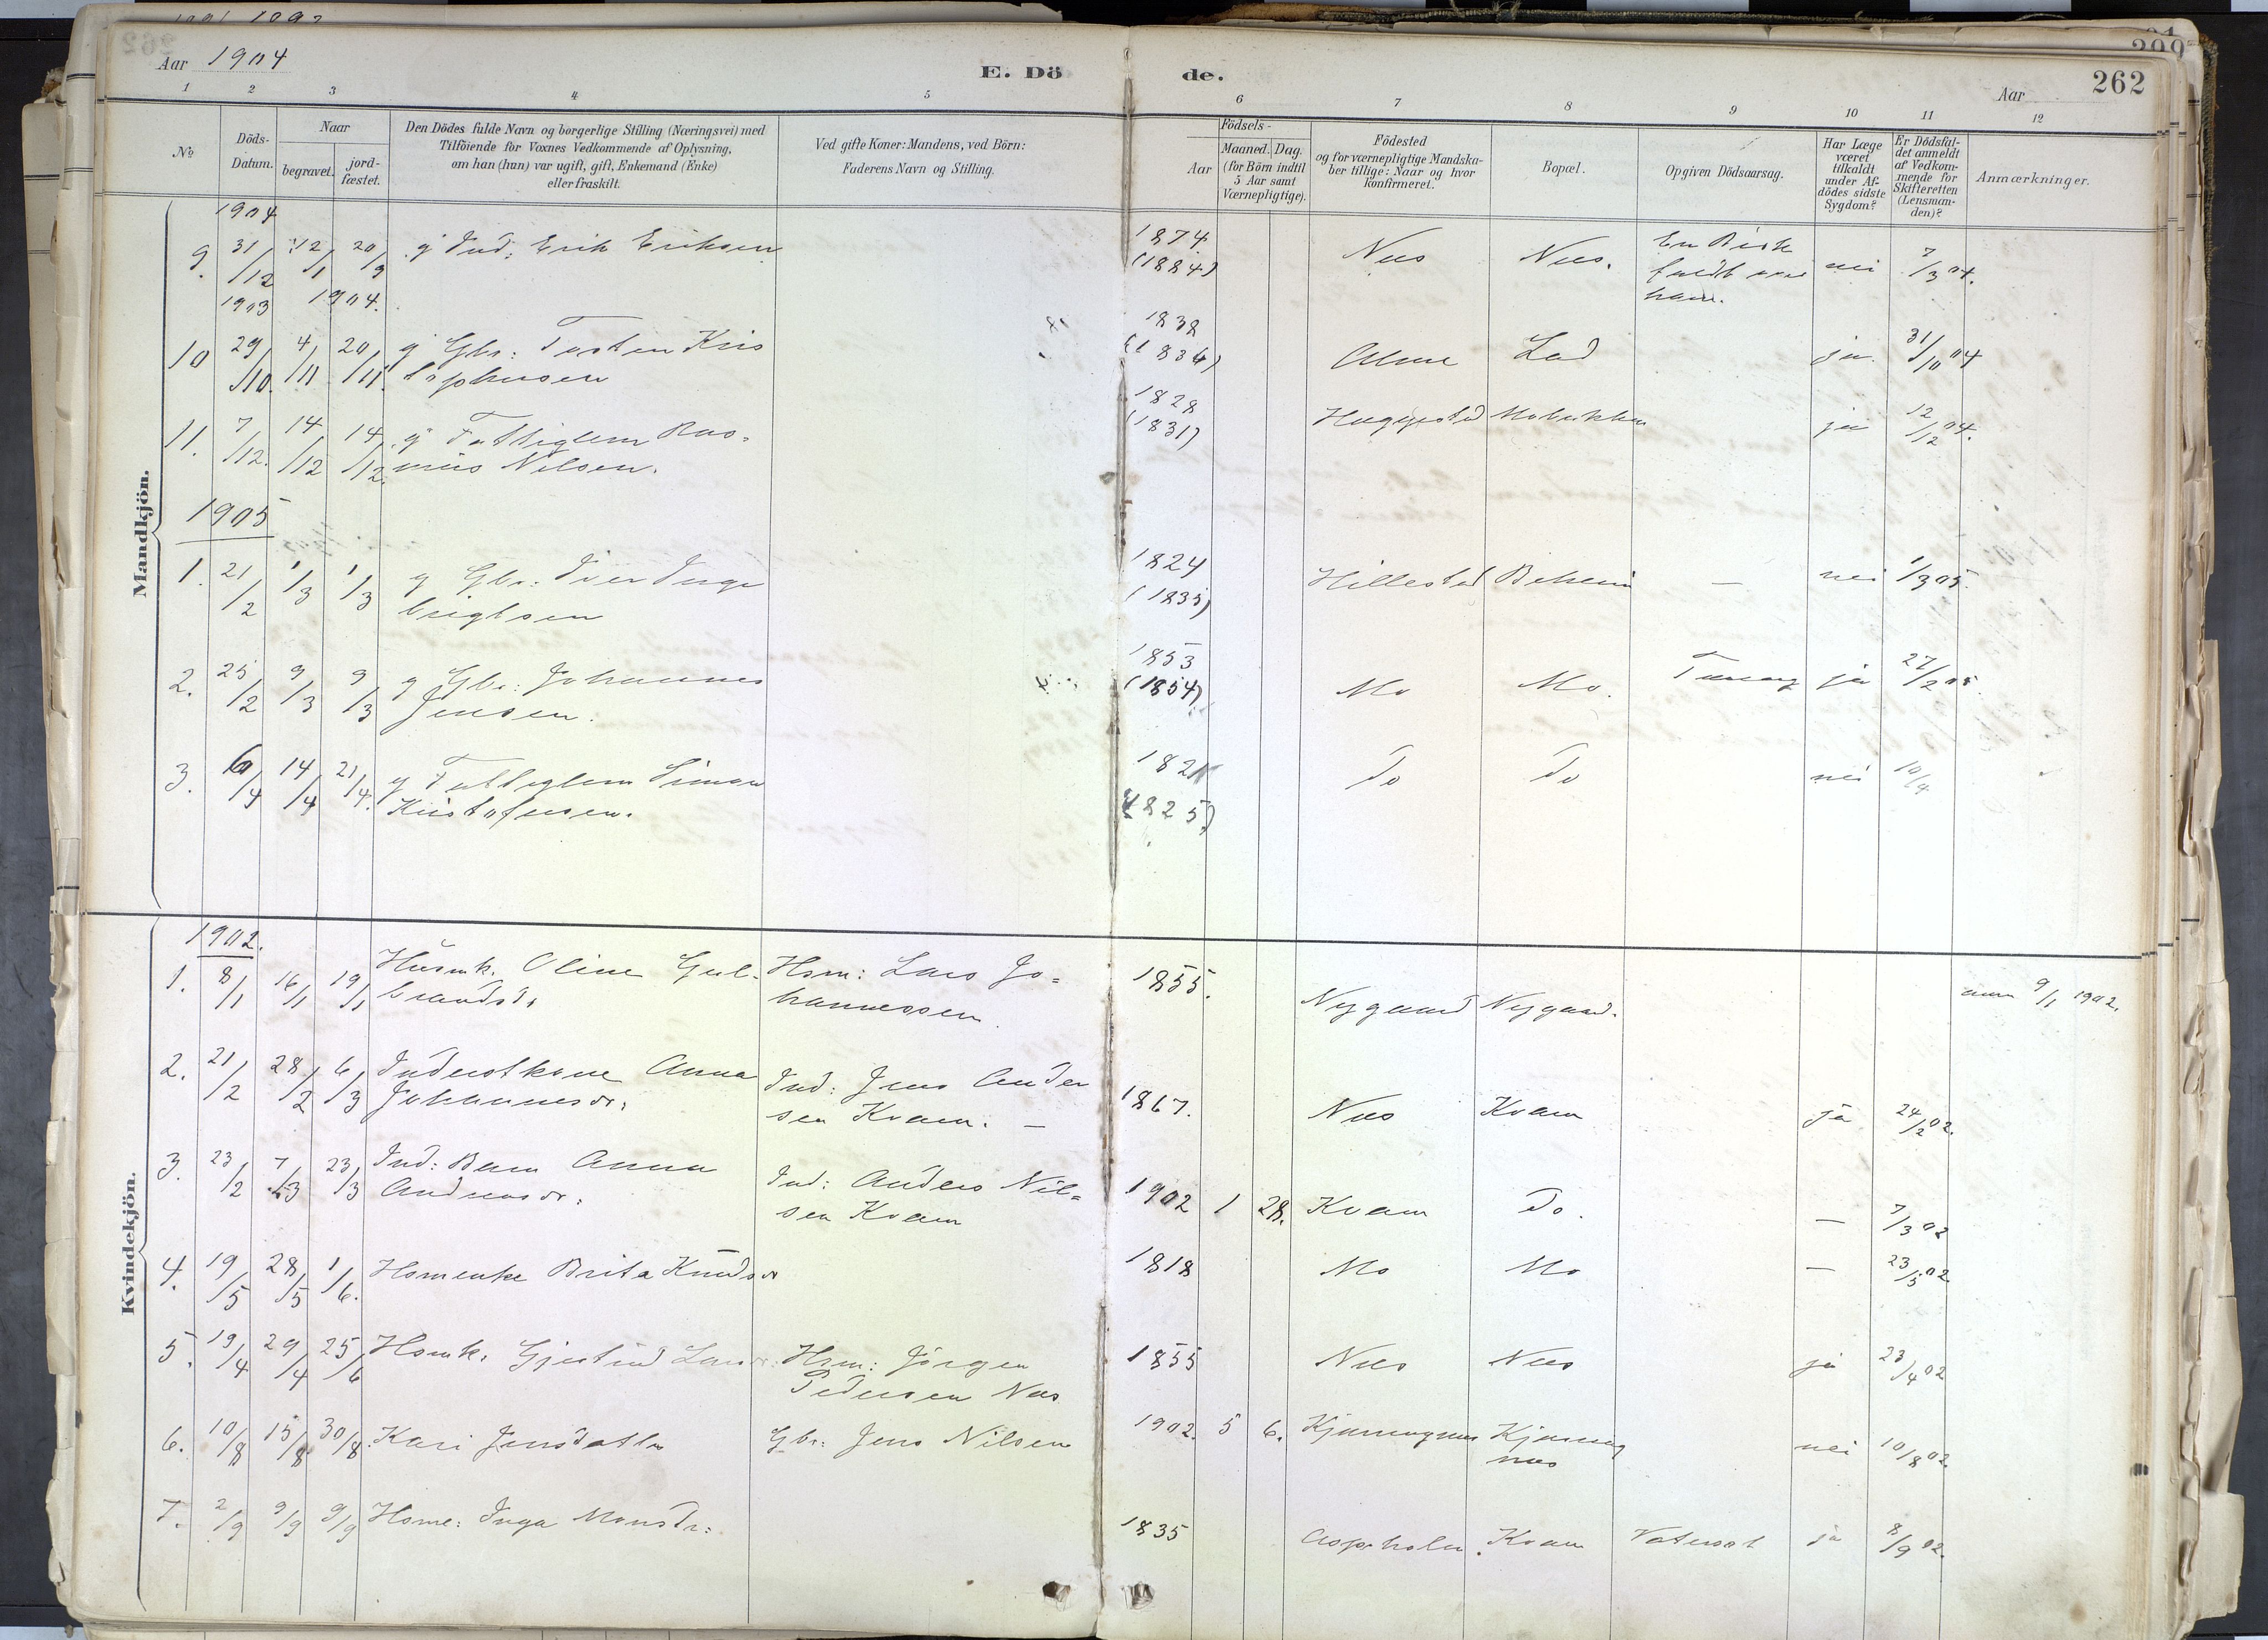 Aar 1904
E. Dö de.
Aar
262
1 2 3 4 5 6 7 8 9 10 11 12
No
Döds-Datum.
Naar
begravet.
jord-fæstet.
Den Dödes fulde Navn og borgerlige Stilling (Næringsvei) med
Tilföiende for Voxnes Vedkommende af Oplysning,
om han (hun) var ugift, gift, Enkemand (Enke)
eller fraskilt.
Ved gifte Koner: Mandens, ved Börn:
Faderens Navn og Stilling.
Födsels-
Aar
Maaned. Dag.
(for Börn indtil
5 Aar samt
Værnepligtige).
Födested
og for værnepligtige Mandska-
ber tillige: Naar og hvor
konfirmeret.
Bopæl.
Opgiven Dödsaarsag.
Har Læge
været
tilkaldt
under Af-
dödes sidste
Sygdom?
Er Dödsfal-
det anmeldt
af Vedkom-
mende for
Skifteretten
(Lensman-
den)?
Anmærkninger.
Mandkjön.
1904
9. 31/12 12/1 20/9 g Ind: Erik Eriksen 1874 Nes Nes. nei 7/3 04.
1903 1904. (1884) ham.
10 29/10. 4/11 20/11. g Gbr: Torsten Kris 1838 Lad ja 31/10 04
tophersen (1836)
11. 7/12. 14/12 14/12. g Fattiglem Ras- 1828 ja 12/12 04.
mus Nilsen. (1831)
1905
1. 21/2 1/3 1/3 g Gbr: Iver Inge 1824 Hillestad — nei 1/3 05.
brigtsen (1835)
2. 25/2 9/3 9/3 g Gbr: Johannes 1853 Mo Mo. ja 27/2 05.
Jensen. (1854)
3. 6/4 14/4 21/4. g Fattiglem Simon 1821 Do Do nei 10/4
Kristofersen. (1825)
Kvindekjön.
1902.
1. 8/1 16/1 19/1 Husmk. Oline Gul- Hsm: Lars Jo- 1855. Nygaard Nygaard. anm 9/1 1902.
brandsdr hannessen.
2. 21/2 28/2 6/3 Inderstkone Anna Ind: Jens Ander 1867. Nes Kvam ja 24/2 02.
Johannesdr. sen Kvam. —
3. 23/2 7/3 23/3 Ind: Barn Anna Ind: Anders Nil- 1902 1 28. Kvam Do. — 7/3 02
Andersdr. sen Kvam
4. 19/5 28/5 1/6. Hsmenke Brita Knudsdr 1818 Mo Mo — 23/5 02
5. 19/4 29/4 25/6 Hsmk. Gjertrud Larsdr: Hsm: Jörgen 1855 Nes Nes ja 23/4 02
Pedersen Nes
6. 10/8 15/8 30/8. Kari Jensdatter Gbr: Jens Nilsen 1902. 5 6. Kjørnungnes Kjørnung nei 10/8 02.
nes
7. 2/9 9/9 9/9 Hsme: Inga Monsdr: 1835 Aspeholm. Kvam Vatersot ja 8/9 02.